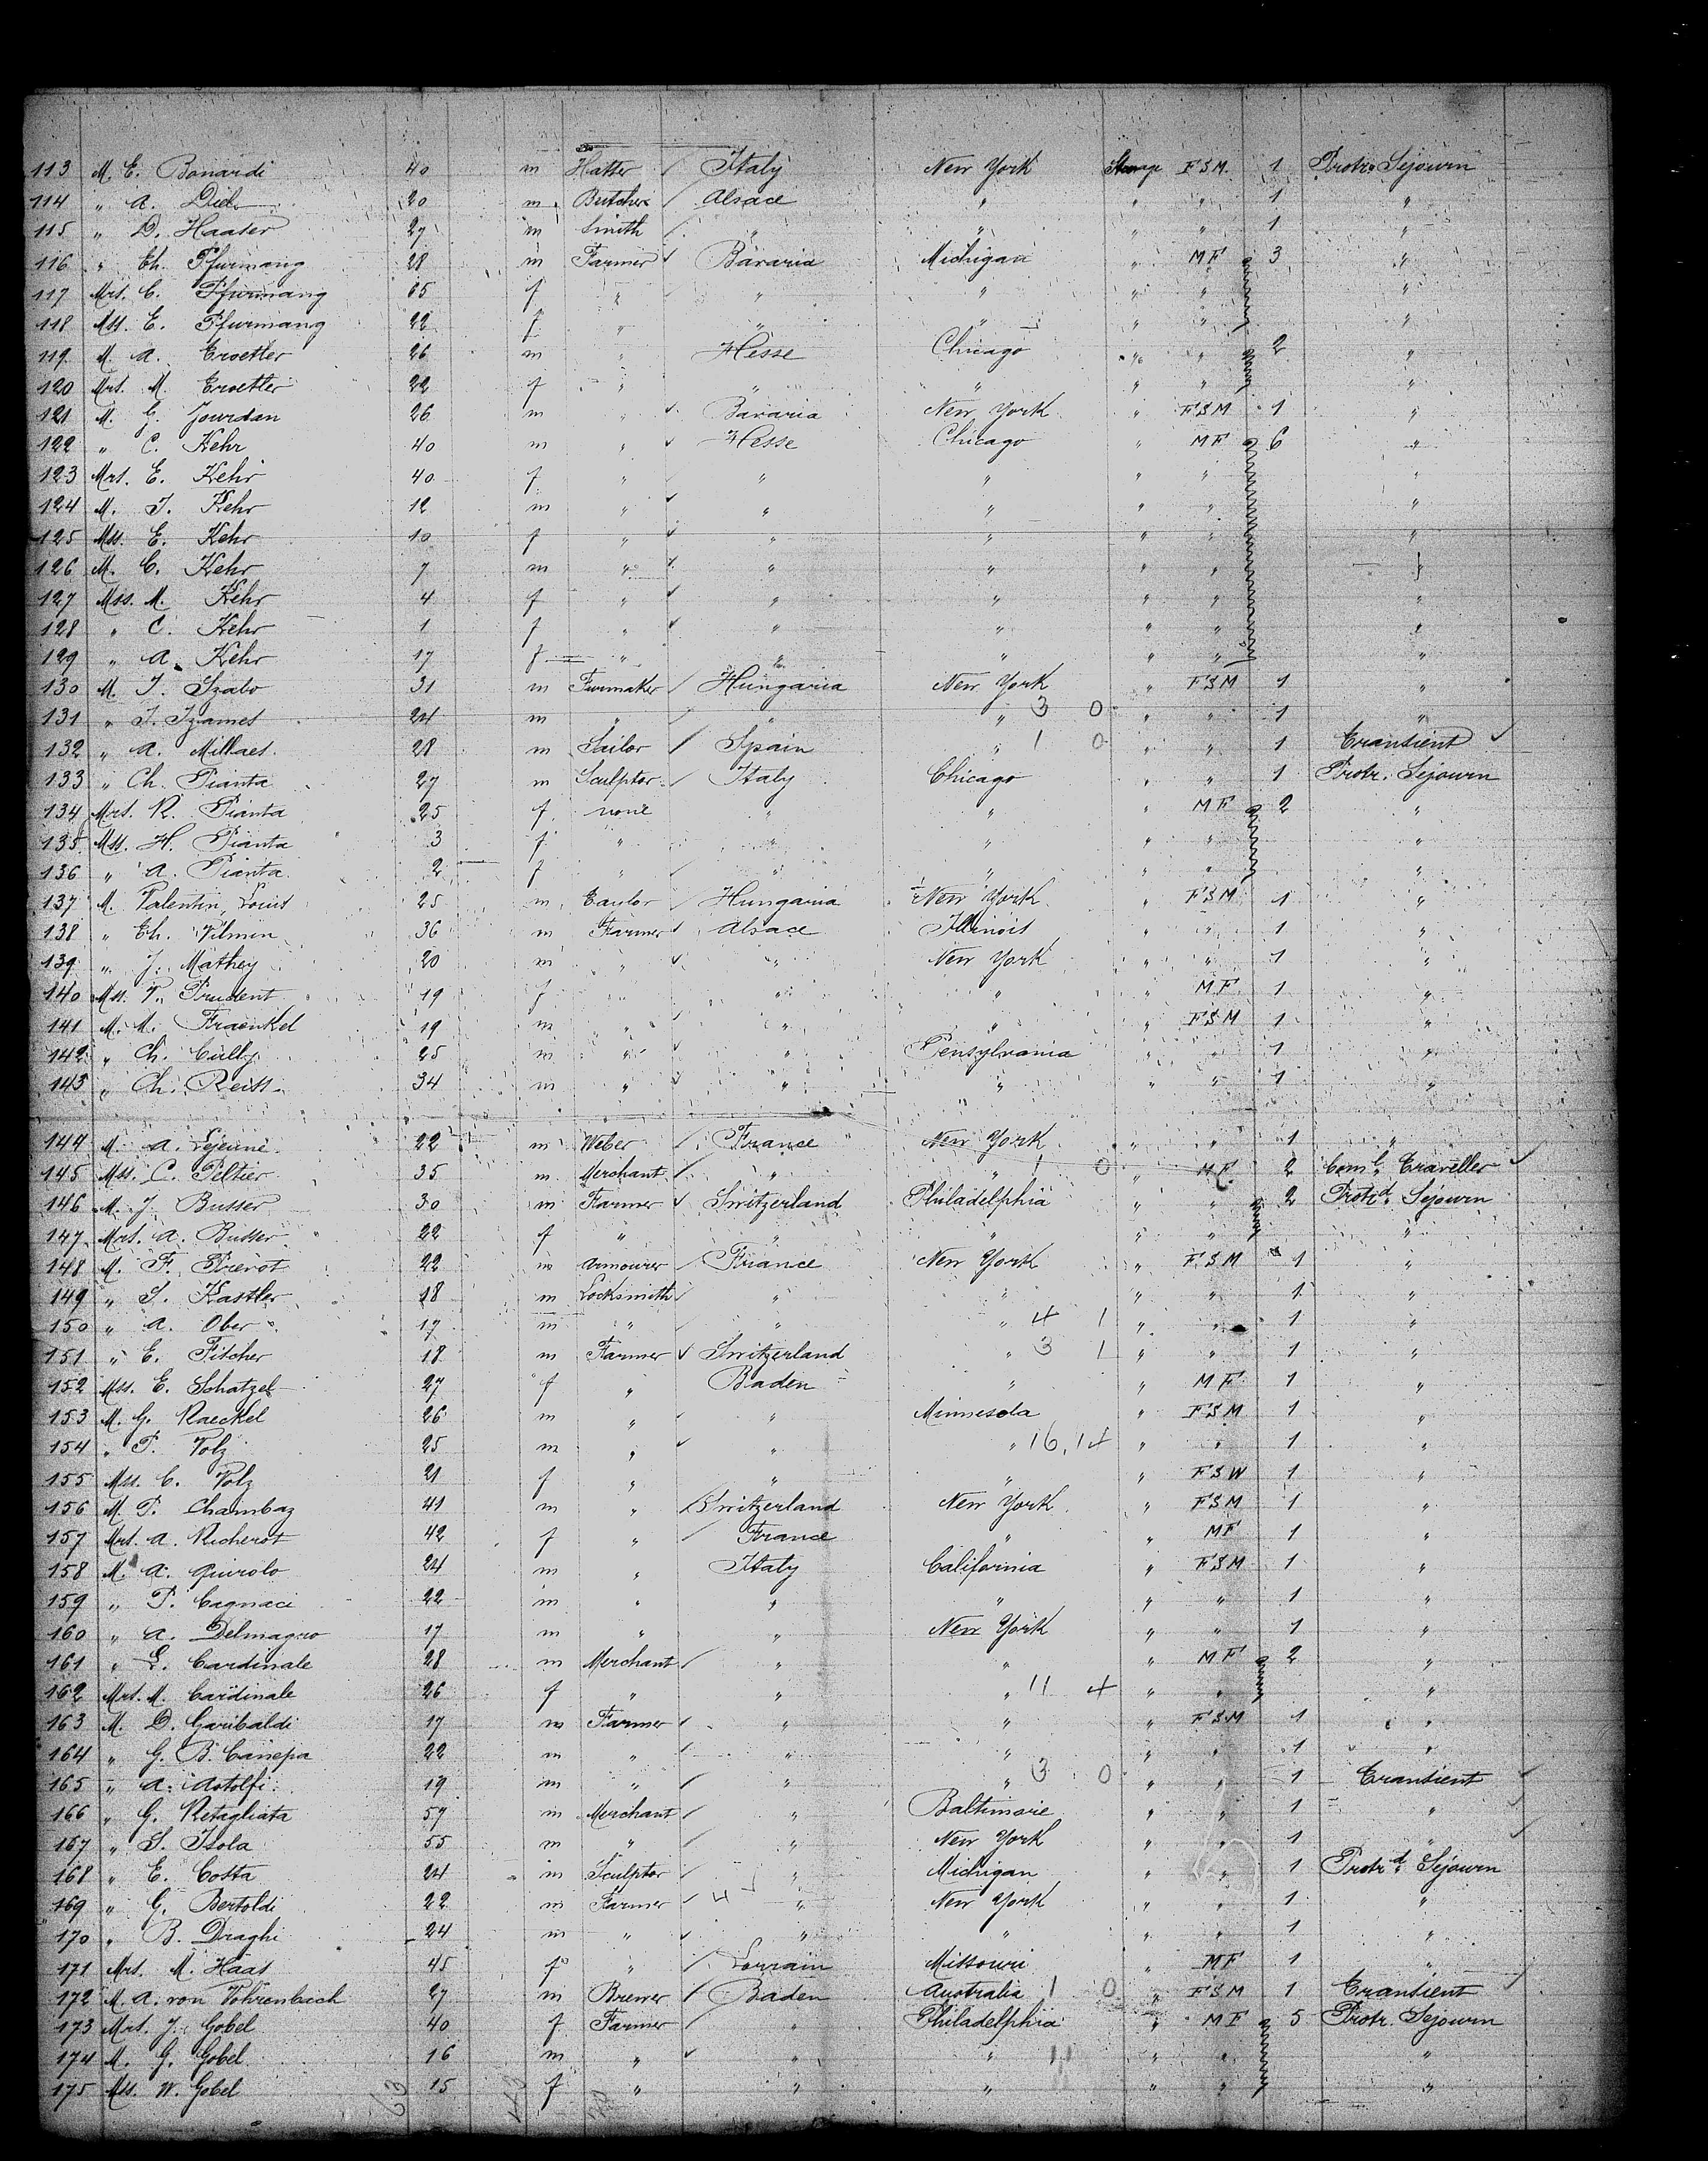 113 M. E. Bonardi 40 m Hatter / Italy New York Steerage F S M. 1 Protr. Sejourn
114 " A. Diel 20 m Butcher / Alsace " " " 1 "
115 " D. Haater 27 m Smith / " " " " 1 "
116 " Ch. Pfurmang 28 m Farmer ✓ Bavaria Michigan " M F 3 "
117 Mrs. C. Pfurmang 65 f " " " " " "
118 Mss. E. Pfurmang 22 f " " " " " "
119 M. A. Croetler 26 m " Hesse Chicago " " 2 "
120 Mrs. M. Croetler 22 f " " " " " "
121 M. G. Jourdan 26 m " ✓ Bavaria New York " F S M 1 "
122 " C. Kehr 40 m " ✓ Hesse Chicago " M F 6 "
123 Mrs. E. Kehr 40 f " " " " " "
124 M. J. Kehr 12 m " ✓ " " " " "
125 Mss. E. Kehr 10 f " ✓ " " " " "
126 M. C. Kehr 7 m " ✓ " " " " "
127 Mss. M. Kehr 4 f " ✓ " " " " "
128 " C. Kehr 1 f " ✓ " " " " "
129 " A. Kehr 17 f " " " " " "
130 M. J. Szabo 31 m Furmaker / Hungaria New York " F S M 1 "
131 " J. Izsames 24 m " / " " 3 0 " " 1 "
132 " A. Millaes 28 m Sailor / Spain " 1 0 " " 1 Transient ✓
133 " Ch. Pianta 27 m Sculptor / Italy Chicago " " 1 Protr. Sejourn
134 Mrs. R. Pianta 25 f none " " " M F 2 "
135 Mss. H. Pianta 3 f " " " " " "
136 " A. Pianta 2 f " / " " " " "
137 M. Valentin, Louis 25 m Taylor / Hungaria New York " F S M 1 "
138 " Ch. Vilmin 36 m Farmer ✓ Alsace Illinois " " 1 "
139 " J. Mathey 20 m " ✓ " New York " " 1 "
140 Mss. V. Prudent 19 f " " " " M F 1 "
141 M. M. Fraenkel 19 m " / " " " F S M 1 "
142 " Ch. Cully 25 m " ✓ " Pensylvania " " 1 "
143 " Ch. Reiss 34 m " ✓ " " " " 1 "
144 M. A. Lejeune 22 m Weber / France New York " " 1 "
145 Mss. C. Peltier 35 m Merchant / " " 1 0 " M F 2 Coml. Traveller ✓
146 M. J. Busser 30 m Farmer ✓ Switzerland Philadelphia " " 2 Protrd. Sejourn
147 Mrs. A. Busser 22 f " " " " " "
148 M. F. Prevot 22 m Armourer / France New York " F S M 1 "
149 " S. Kastler 18 m Locksmith / " " " " 1 "
150 " A. Ober 17 m " / " " 4 1 " " 1 "
151 " E. Fitcher 18 m Farmer ✓ Switzerland " 3 1 " " 1 "
152 Mss. E. Schatzel 27 f " Baden " " M F 1 "
153 M. G. Raeckel 26 m " / " Minnesota " F S M 1 "
154 " P. Volz 25 m " ✓ " " 16, 14 " " 1 "
155 Mss. C. Volz 21 f " " " " F S W 1 "
156 M. P. Chambaz 41 m " / Switzerland New York " F S M 1 "
157 Mrs. A. Richerot 42 f " / France " " M F 1 "
158 M. A. Quirolo 24 m " Italy California " F S M 1 "
159 " P. Cagnaci 22 m " " " " " 1 "
160 " A. Delmagno 17 m " " New York " " 1 "
161 " L. Cardinale 28 m Merchant / " " " M F 2 "
162 Mrs. M. Cardinale 26 f " " " 11 4 " " "
163 M. D. Garibaldi 17 m Farmer / " " " F S M 1 "
164 " G. B. Canepa 22 m " / " " " " 1 "
165 " A. Astolfi 19 m " / " " 3 0 " " 1 Transient ✓
166 " G. Retagliata 57 m Merchant / " Baltimore " " 1 " ✓
167 " S. Isola 55 m " / " New York " " 1 " ✓
168 " E. Costa 24 m Sculptor / " Michigan " " 1 Protrd. Sejourn
169 " G. Bertoldi 22 m Farmer / " New York " " 1 "
170 " B. Draghi 24 m " ✓ " " " " 1 "
171 Mrs. M. Haas 45 f " / Lorrain Missouri " M F 1 "
172 M. A. von Vohrenbach 27 m Brewer / Baden Australia 1 0 " F S M 1 Transient ✓
173 Mrs. J. Gobel 40 f Farmer / " Philadelphia " M F 5 Protr. Sejourn
174 M. G. Gobel 16 m " ✓ " " 11 " " "
175 Mss. W. Gobel 15 f " " " " " "
63